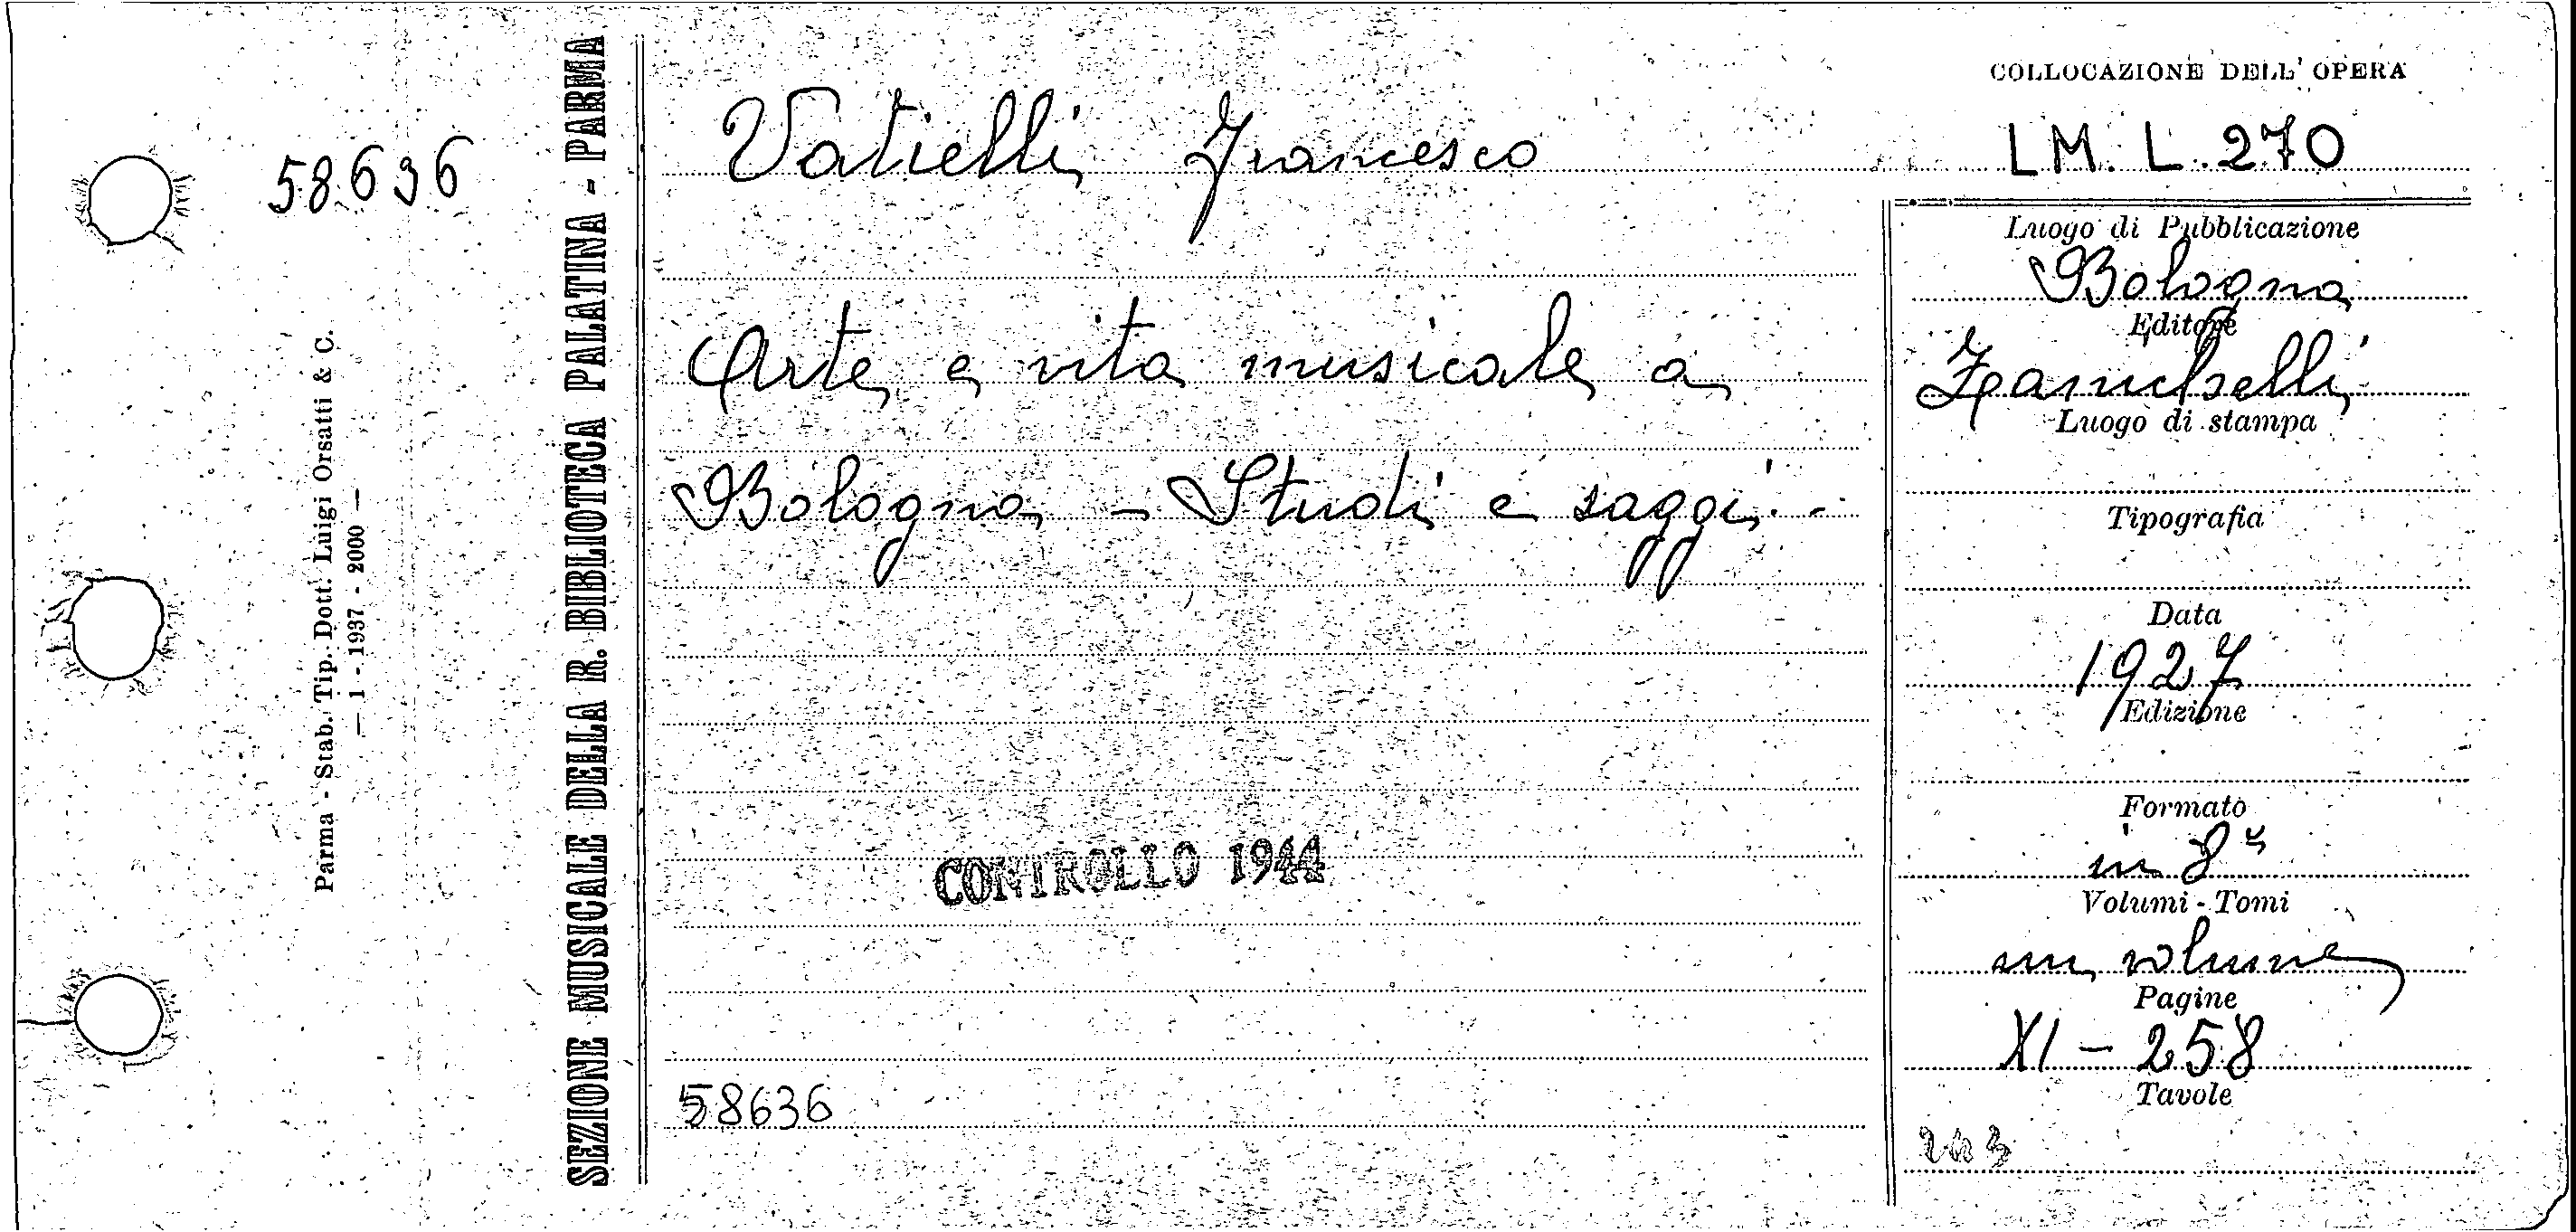 58636
Parma - Stab. Tip. Dott. Luigi Orsatti & C.
— 1 - 1937 - 2000 —
SEZIONE MUSICALE DELLA R. BIBLIOTECA PALATINA - PARMA
Vatielli Francesco
Arte e vita musicale a
Bologna - Studi e saggi -
CONTROLLO 1944
58636
COLLOCAZIONE DELL' OPERA
LM. L. 270
Luogo di Pubblicazione
Bologna
Editore
Zanichelli
Luogo di stampa
Tipografia
Data
1927
Edizione
Formato
in 8º
Volumi - Tomi
un volume
Pagine
XI - 258
Tavole